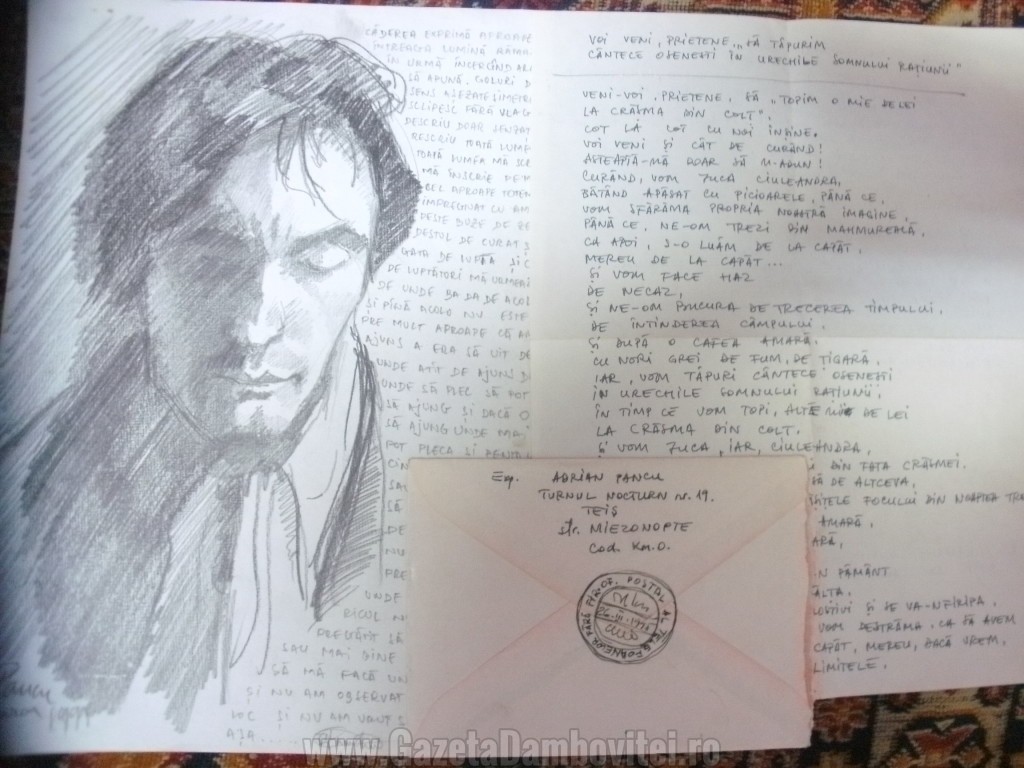 CĂDEREA EXPRIMĂ APROAPE
ÎNTREAGA LUMINĂ RĂMA
ÎN URMĂ ÎNCERCÎND
SĂ APUNĂ. GOLURI
SENS AȘEZATE SIMETRI
SCLIPESC FĂRĂ VLAG
DESCRIU DOAR SENZAȚ
RESCRIU TOATĂ LUME
TOATĂ LUMEA MĂ SCR
MĂ ÎNSCRIE
APROAPE TOTEM
IMPREGNAT CU AM
DESTUL DE CURAT
GATA DE LUPTĂ ȘI
DE LUPTĂTORI MĂ URMER
DE UNDE DA DA DE ACOL
ȘI PÎNĂ ACOLO NU ESTE
PRE MULT APROAPE CĂ
AJUNS A ERA SĂ UIT DE
UNDE ATÎT DE AJUNS
UNDE SĂ PLEC SĂ POT
SĂ AJUNG ȘI DACĂ O
SĂ AJUNG UNDE MAI
POT PLECA ȘI PENTRU
CIN
SAU
SĂ
DE
NU
PRE
UNDE
RICUL
PREGĂTIT SĂ
SAU MAI BINE
SĂ MĂ FACĂ UN
ȘI NU AM OBSERVAT
LOC ȘI NU AM VRUT
AȘA.....
Pancu
VOI VENI, PRIETENE, „SĂ TĂPURIM
CÂNTECE OSENEȘTI ÎN URECHILE SOMNULUI RAȚIUNII"
VENI-VOI, PRIETENE, SĂ „TOPIM O MIE DE LEI
LA CRÂȘMA DIN COLȚ",
COT LA COT CU NOI ÎNȘINE.
VOI VENI ȘI CÂT DE CURÂND!
AȘTEAPTĂ-MĂ DOAR SĂ M-ADUN!
CURÂND, VOM JUCA CIULEANDRA,
BĂTÂND APĂSAT CU PICIOARELE, PÂNĂ CE,
VOM SFĂRÂMA PROPRIA NOASTRĂ IMAGINE,
PÂNĂ CE, NE-OM TREZI DIN MAHMUREALĂ,
CA APOI, S-O LUĂM DE LA CAPĂT,
MEREU DE LA CAPĂT...
ȘI VOM FACE HAZ
DE NECAZ,
ȘI NE-OM BUCURA DE TRECEREA TIMPULUI,
DE ÎNTINDEREA CÂMPULUI.
ȘI DUPĂ O CAFEA AMARĂ,
CU NORI GREI DE FUM, DE ȚIGARĂ,
IAR, VOM TĂPURI CÂNTECE OSENEȘTI
ÎN URECHILE SOMNULUI RAȚIUNII,
ÎN TIMP CE VOM TOPI, ALTE MII DE LEI
LA CRÂȘMA DIN COLȚ.
ȘI VOM JUCA, IAR, CIULEANDRA,
DIN FAȚA CRÂȘMEI.
DE ALTCEVA,
FOCULUI DIN NOAPTEA
AMARĂ,
ARĂ,
PĂMÂNT
ALTA.
ȘI SE VA-NFIRIPA,
VOM DESTRĂMA, CA SĂ AVEM
CAPĂT, MEREU, DACĂ VREM,
LIMITELE.
Exp. ADRIAN PANCU
TURNUL NOCTURN nr. 19.
TEIȘ
str. MIEZONOPTE
Cod. Km. O.
OF. POSTAL AL
www.GazetaDambovitei.ro